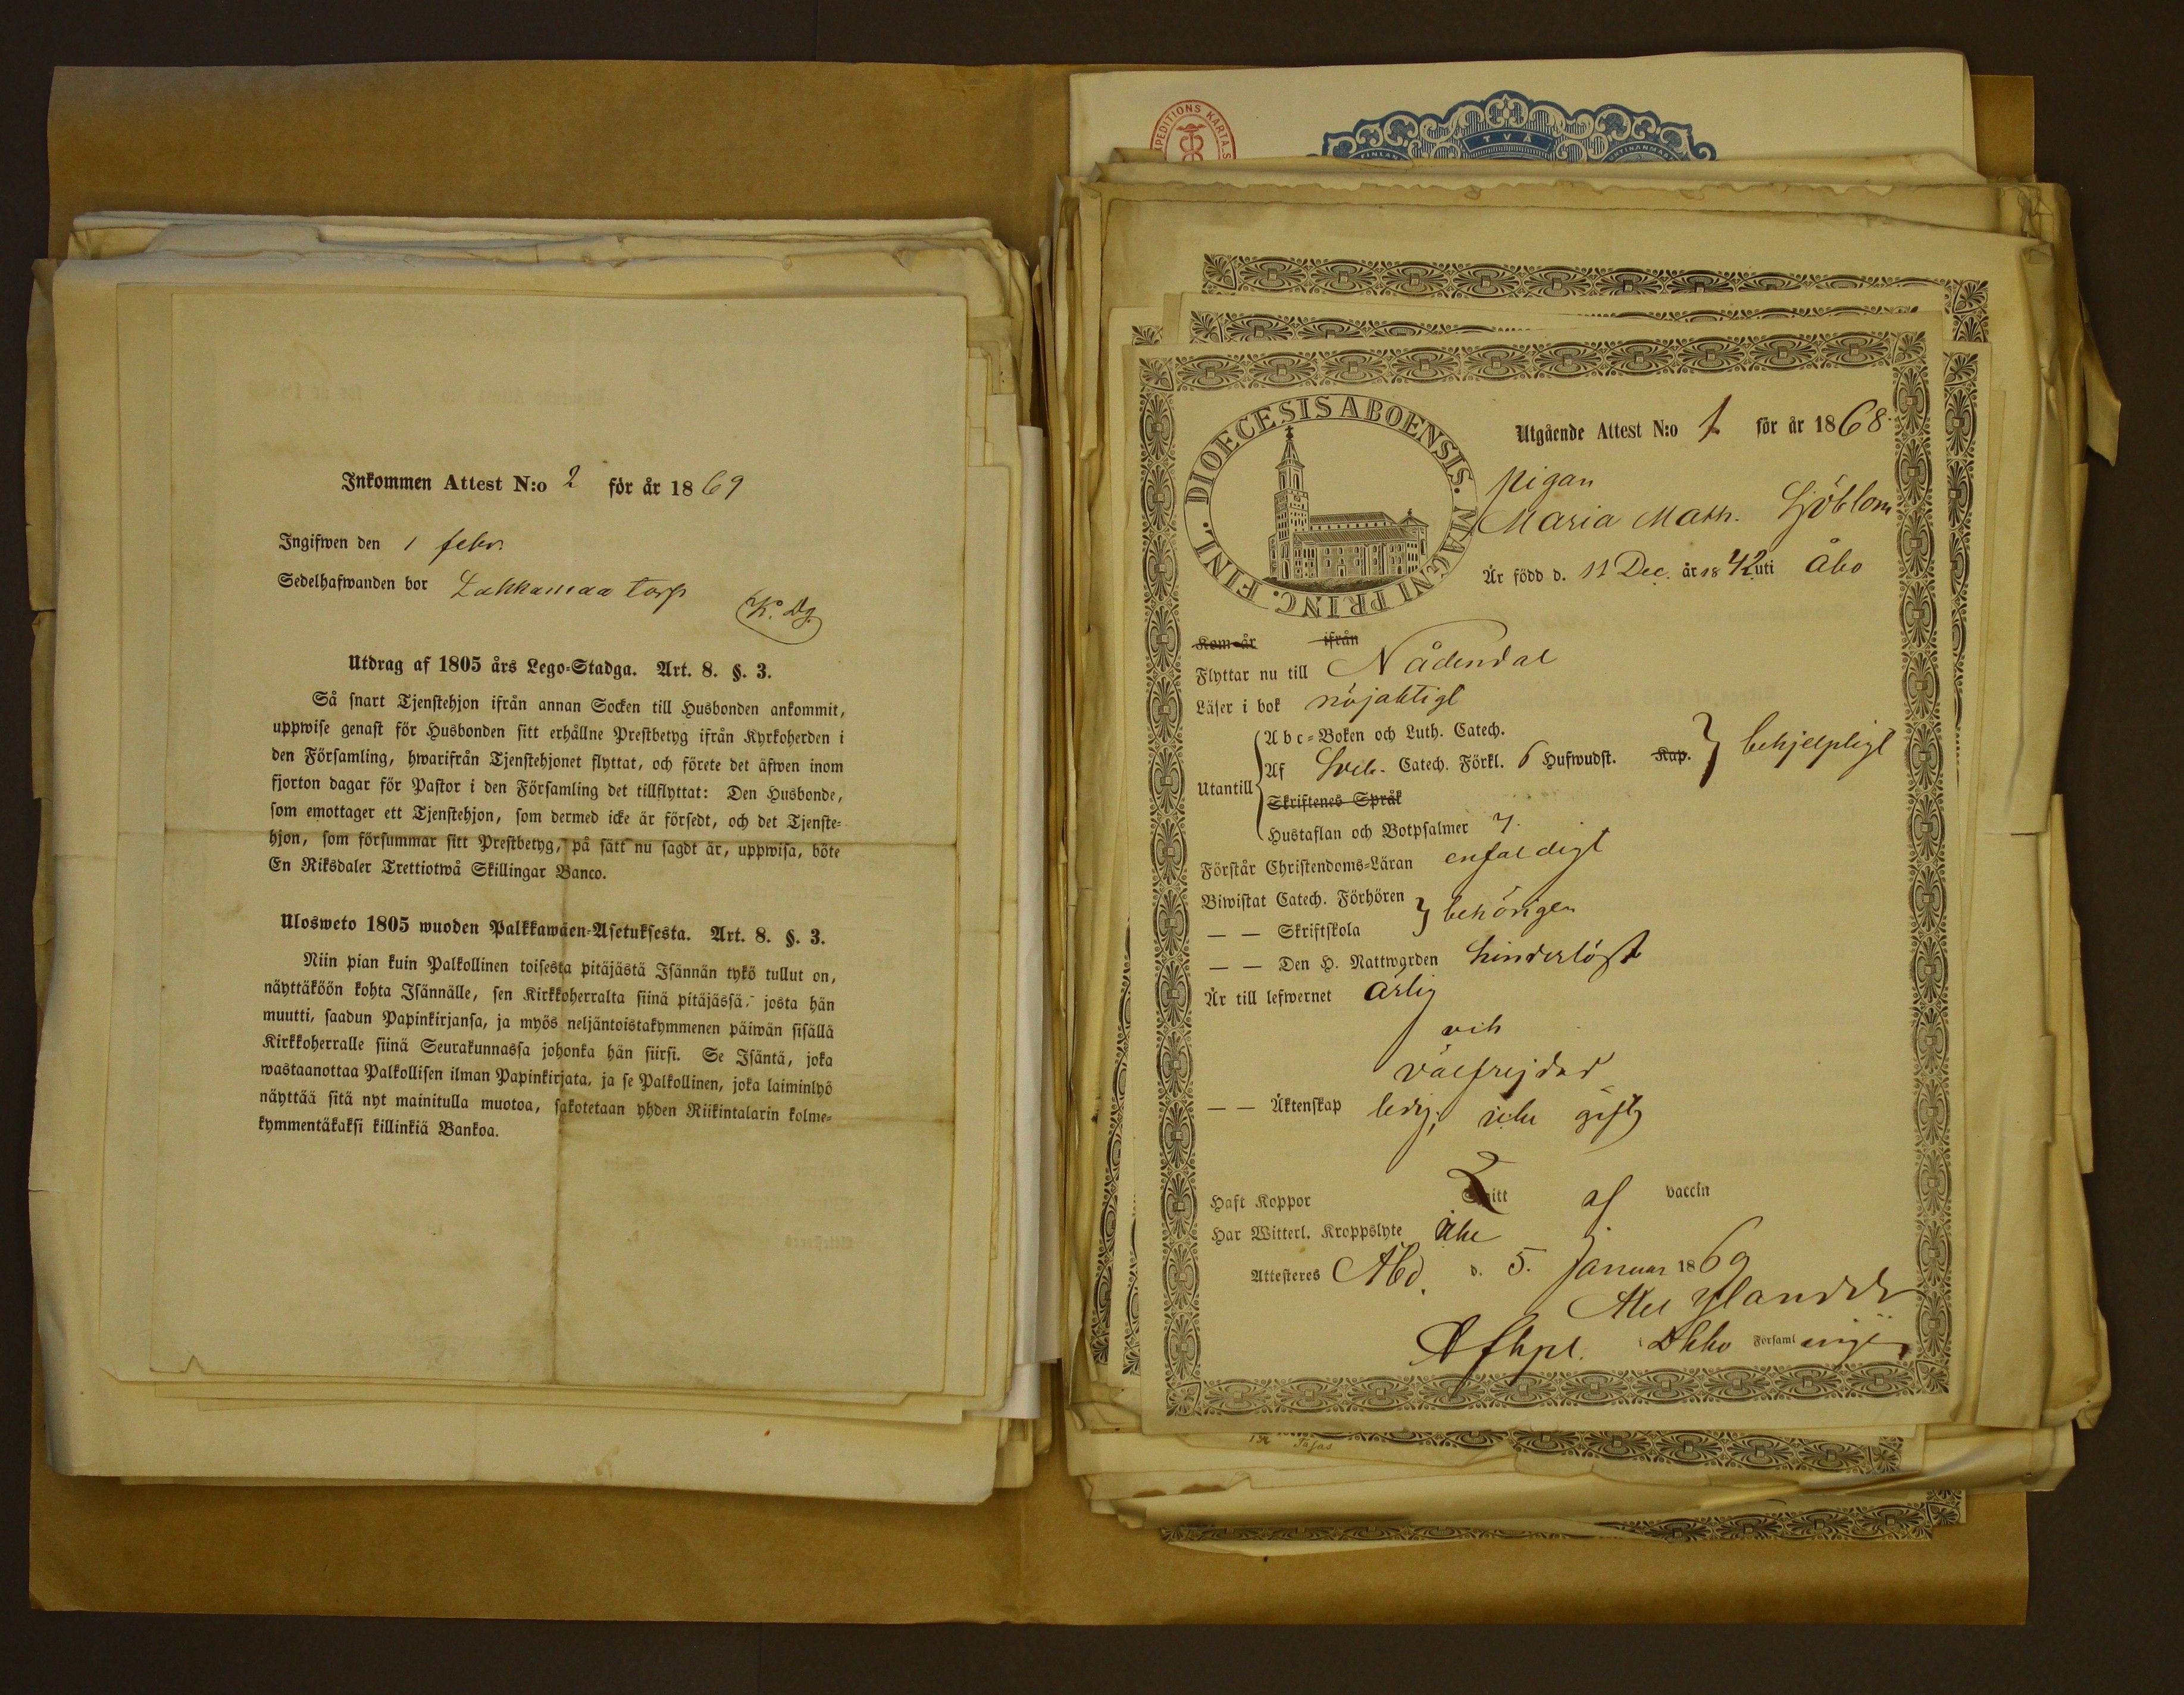 Inkommen Attest N:o 2 för år 1869
Ingifwen den 1 febr.
Sedelhafwanden bor Lakkamaa torp
K. Dg.
Utdrag af 1805 års Lego-Stadga. Art. 8. §. 3.
Så snart Tjenstehjon ifrån annan Socken till Husbonden ankommit,
uppwise genast för Husbonden sitt erhållne Prestbetyg ifrån Kyrkoherden i
den Församling, hwarifrån Tjenstehjonet flyttat, och förete det äfwen inom
fjorton dagar för Pastor i den Församling det tillflyttat: Den Husbonde,
som emottager ett Tjenstehjon, som dermed icke är försedt, och det Tjenste-
hjon, som försummar sitt Prestbetyg, på sätt nu sagdt är, uppwisa, böte
En Riksdaler Trettiotwå Skillingar Banco.
Ulosweto 1805 wuoden Palkkawäen-Asetuksesta. Art. 8. §. 3.
Niin pian kuin Palkollinen toisesta pitäjästä Isännän tykö tullut on,
näyttäköön kohta Isännälle, sen Kirkkoherralta siinä pitäjässä, josta hän
muutti, saadun Papinkirjansa, ja myös neljäntoistakymmenen päiwän sisällä
Kirkkoherralle siinä Seurakunnassa johonka hän siirsi. Se Isäntä, joka
wastaanottaa Palkollisen ilman Papinkirjata, ja se Palkollinen, joka laiminlyö
näyttää sitä nyt mainitulla muotoa, sakotetaan yhden Riikintalarin kolme-
kymmentäkaksi killinkiä Bankoa.
EXPEDITIONS KARTA.S
TVÅ
FINLAN
DIOECESIS ABOENSIS. MAGNI PRINC. FINL.
Utgående Attest N:o 1 för år 1868.
pigan
Maria Math. Sjöblom
Är född d. 11 Dec. år 1842 uti Åbo
Kom år ifrån
Flyttar nu till Nådendal
Läser i bok nöjaktigt
Utantill
Abc-Boken och Luth. Catech.
Af Sveb. Catech. Förkl. 6 Hufwudst. Kap. behjelpligt
Skriftenes Språk
Hustaflan och Botpsalmer 7.
Förstår Christendoms-Läran enfaldigt
Biwistat Catech. Förhören behörigen
— — Skriftskola
— — Den H. Nattwarden hinderlöst
Är till lefwernet ärlig
och
välfrejdad
— — Äktenskap ledig, icke gift
Haft Koppor Smitt af vaccin
Har Witterl. Kroppslyte icke
Attesteres Åbo d. 5. Januar 1869
Ylander
i Åbo Församl